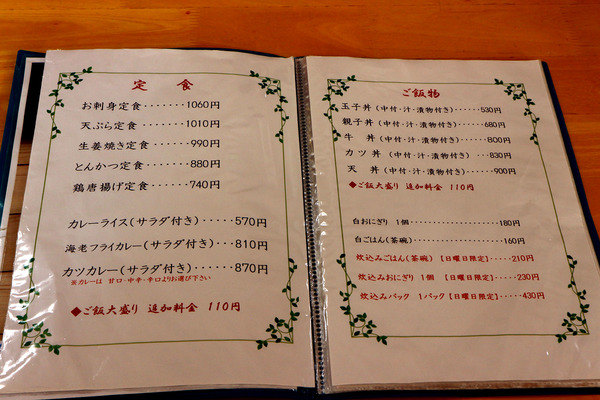 定食
お刺身定食・・・・・・・1060円
天ぷら定食・・・・・・・1010円
生姜焼き定食・・・・・・990円
とんかつ定食・・・・・・880円
鶏唐揚げ定食・・・・・・740円
カレーライス(サラダ付き)・・・・・570円
海老フライカレー(サラダ付き)・・・810円
カツカレー(サラダ付き)・・・・・・870円
※カレーは 甘口・中辛・辛口よりお選び下さい
◆ご飯大盛り 追加料金 110円
ご飯物
玉子丼(中付・汁・漬物付き)・・・・・530円
親子丼(中付・汁・漬物付き)・・・・・680円
牛 丼(中付・汁・漬物付き)・・・・・800円
カツ丼(中付・汁・漬物付き)・・・830円
天 丼(中付・汁・漬物付き)・・・・・900円
◆ご飯大盛り 追加料金 110円
白おにぎり 1個・・・・・・・・・・・・・180円
白ごはん(茶碗)・・・・・・・・・・・・・160円
炊込みごはん(茶碗)【日曜日限定】・・・・・210円
炊込みおにぎり 1個【日曜日限定】・・・・・230円
炊込みパック 1パック【日曜日限定】・・・・・430円